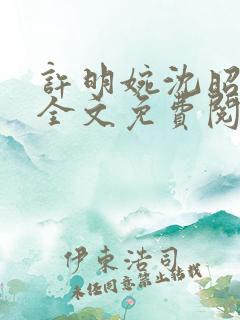 許明婉沈昭
全文免費閱
伊東浩司
未經同意禁止轉載